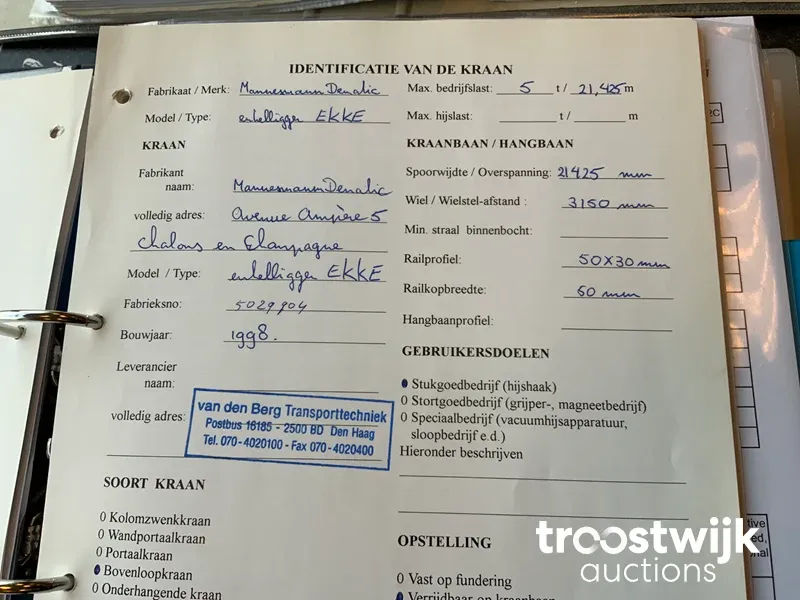 IDENTIFICATIE VAN DE KRAAN
Fabrikaat / Merk: Mannesmann Dematic
Model / Type: enkelligger EKKE
KRAAN
Fabrikant
naam: Mannesmann Dematic
volledig adres: Avenue Ampère 5
Chalons en Champagne
Model / Type: enkelligger EKKE
Fabrieksno: 5029904
Bouwjaar: 1998.
Leverancier
naam:
volledig adres:
van den Berg Transporttechniek
Postbus 16185 - 2500 BD Den Haag
Tel. 070-4020100 - Fax 070-4020400
SOORT KRAAN
0 Kolomzwenkkraan
0 Wandportaalkraan
0 Portaalkraan
Bovenloopkraan
0 Onderhangende kraan
Max. bedrijfslast: 5 t / 21,425 m
Max. hijslast: t / m
KRAANBAAN / HANGBAAN
Spoorwijdte / Overspanning: 21425 mm
Wiel / Wielstel-afstand : 3150 mm
Min. straal binnenbocht:
Railprofiel: 50X30 mm
Railkopbreedte: 50 mm
Hangbaanprofiel:
GEBRUIKERSDOELEN
Stukgoedbedrijf (hijshaak)
0 Stortgoedbedrijf (grijper-, magneetbedrijf)
0 Speciaalbedrijf (vacuumhijsapparatuur,
sloopbedrijf e.d.)
Hieronder beschrijven
OPSTELLING
0 Vast op fundering
Verrijdbaar op kraanbaan
troostwijk
auctions